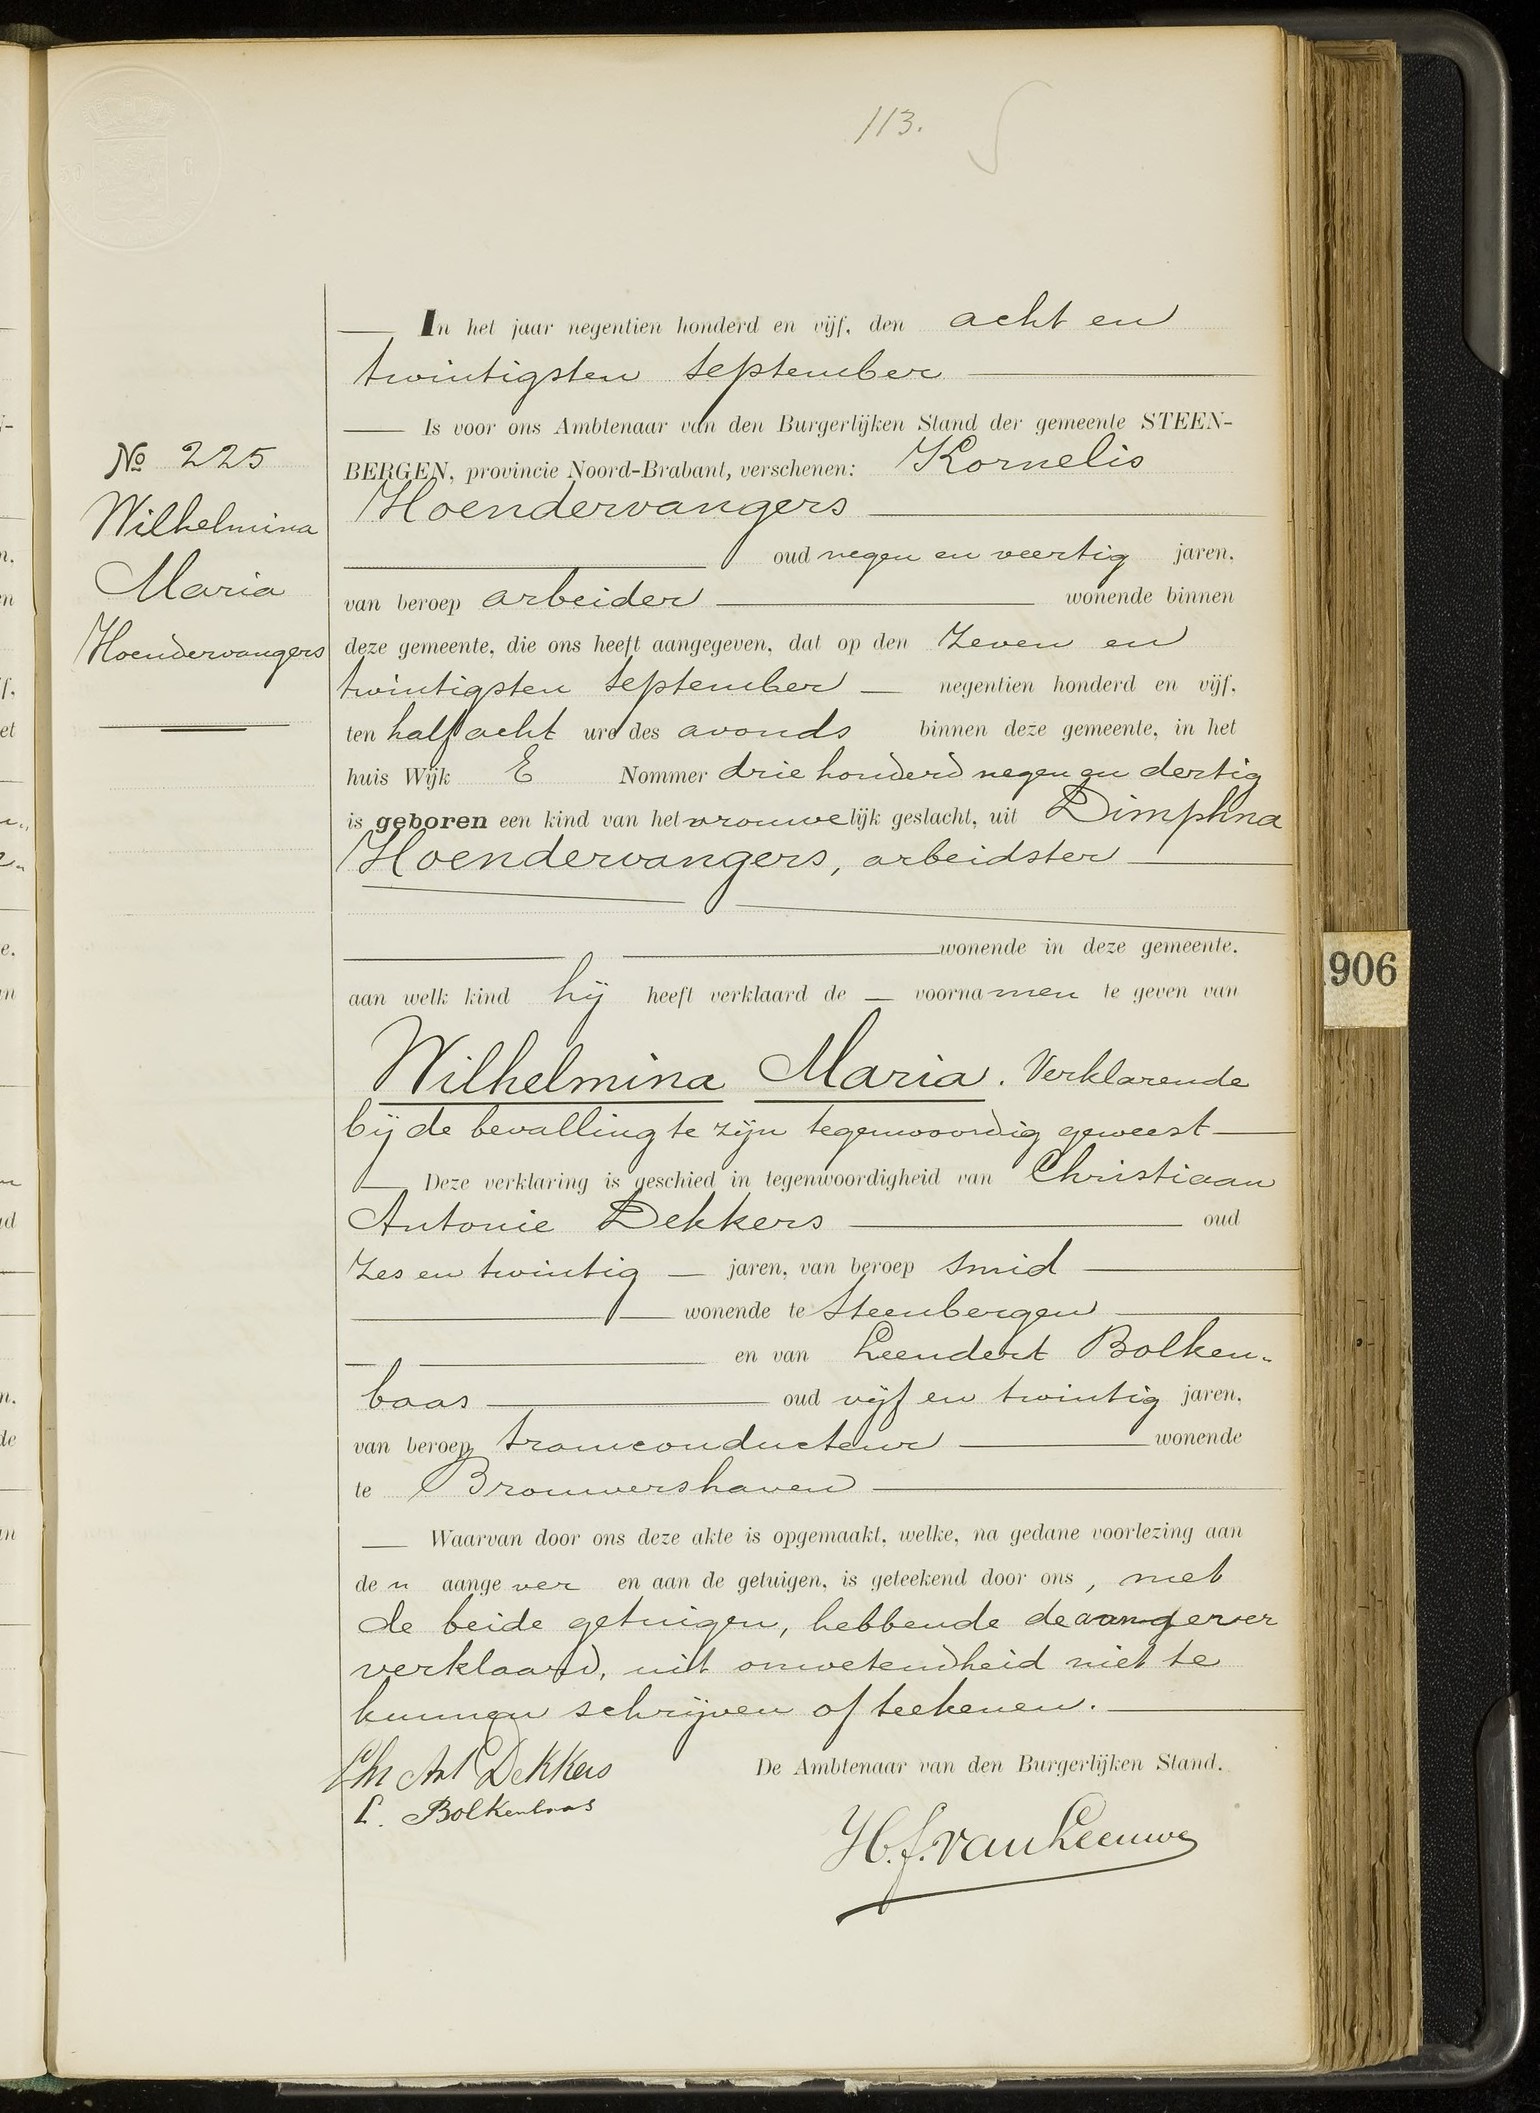 113.
In het jaar negentien honderd en vijf, den acht en
twintigsten September
Is voor ons Ambtenaar van den Burgerlijken Stand der gemeente STEEN-
BERGEN, provincie Noord-Brabant, verschenen: Kornelis
Hoendervangers
oud negen en veertig jaren,
van beroep arbeider wonende binnen
deze gemeente, die ons heeft aangegeven, dat op den Zeven en
twintigsten September negentien honderd en vijf,
ten half acht ure des avonds binnen deze gemeente, in het
huis Wijk E Nommer drie honderd negen en dertig
is geboren een kind van het vrouwelijk geslacht, uit Dimphna
Hoendervangers, arbeidster
wonende in deze gemeente.
aan welk kind hij heeft verklaard de voornamen te geven van
Wilhelmina Maria. Verklarende
bij de bevalling te zijn tegenwoordig geweest
Deze verklaring is geschied in tegenwoordigheid van Christiaan
Antonie Dekkers oud
Zes en twintig jaren, van beroep Smid
wonende te Steenbergen
en van Leendert Bolken-
baas oud vijf en twintig jaren,
van beroep tramconducteur wonende
te Brouwershaven
Waarvan door ons deze akte is opgemaakt, welke, na gedane voorlezing aan
den aangever en aan de getuigen, is geteekend door ons, met
de beide getuigen, hebbende de aangever
verklaard, uit onwetendheid niet te
kunnen schrijven of teekenen.
De Ambtenaar van den Burgerlijken Stand.
Chr Ant Dekkers
L. Bolkenbaas
H.J. van Leeuwe
No 225
Wilhelmina
Maria
Hoendervangers
906